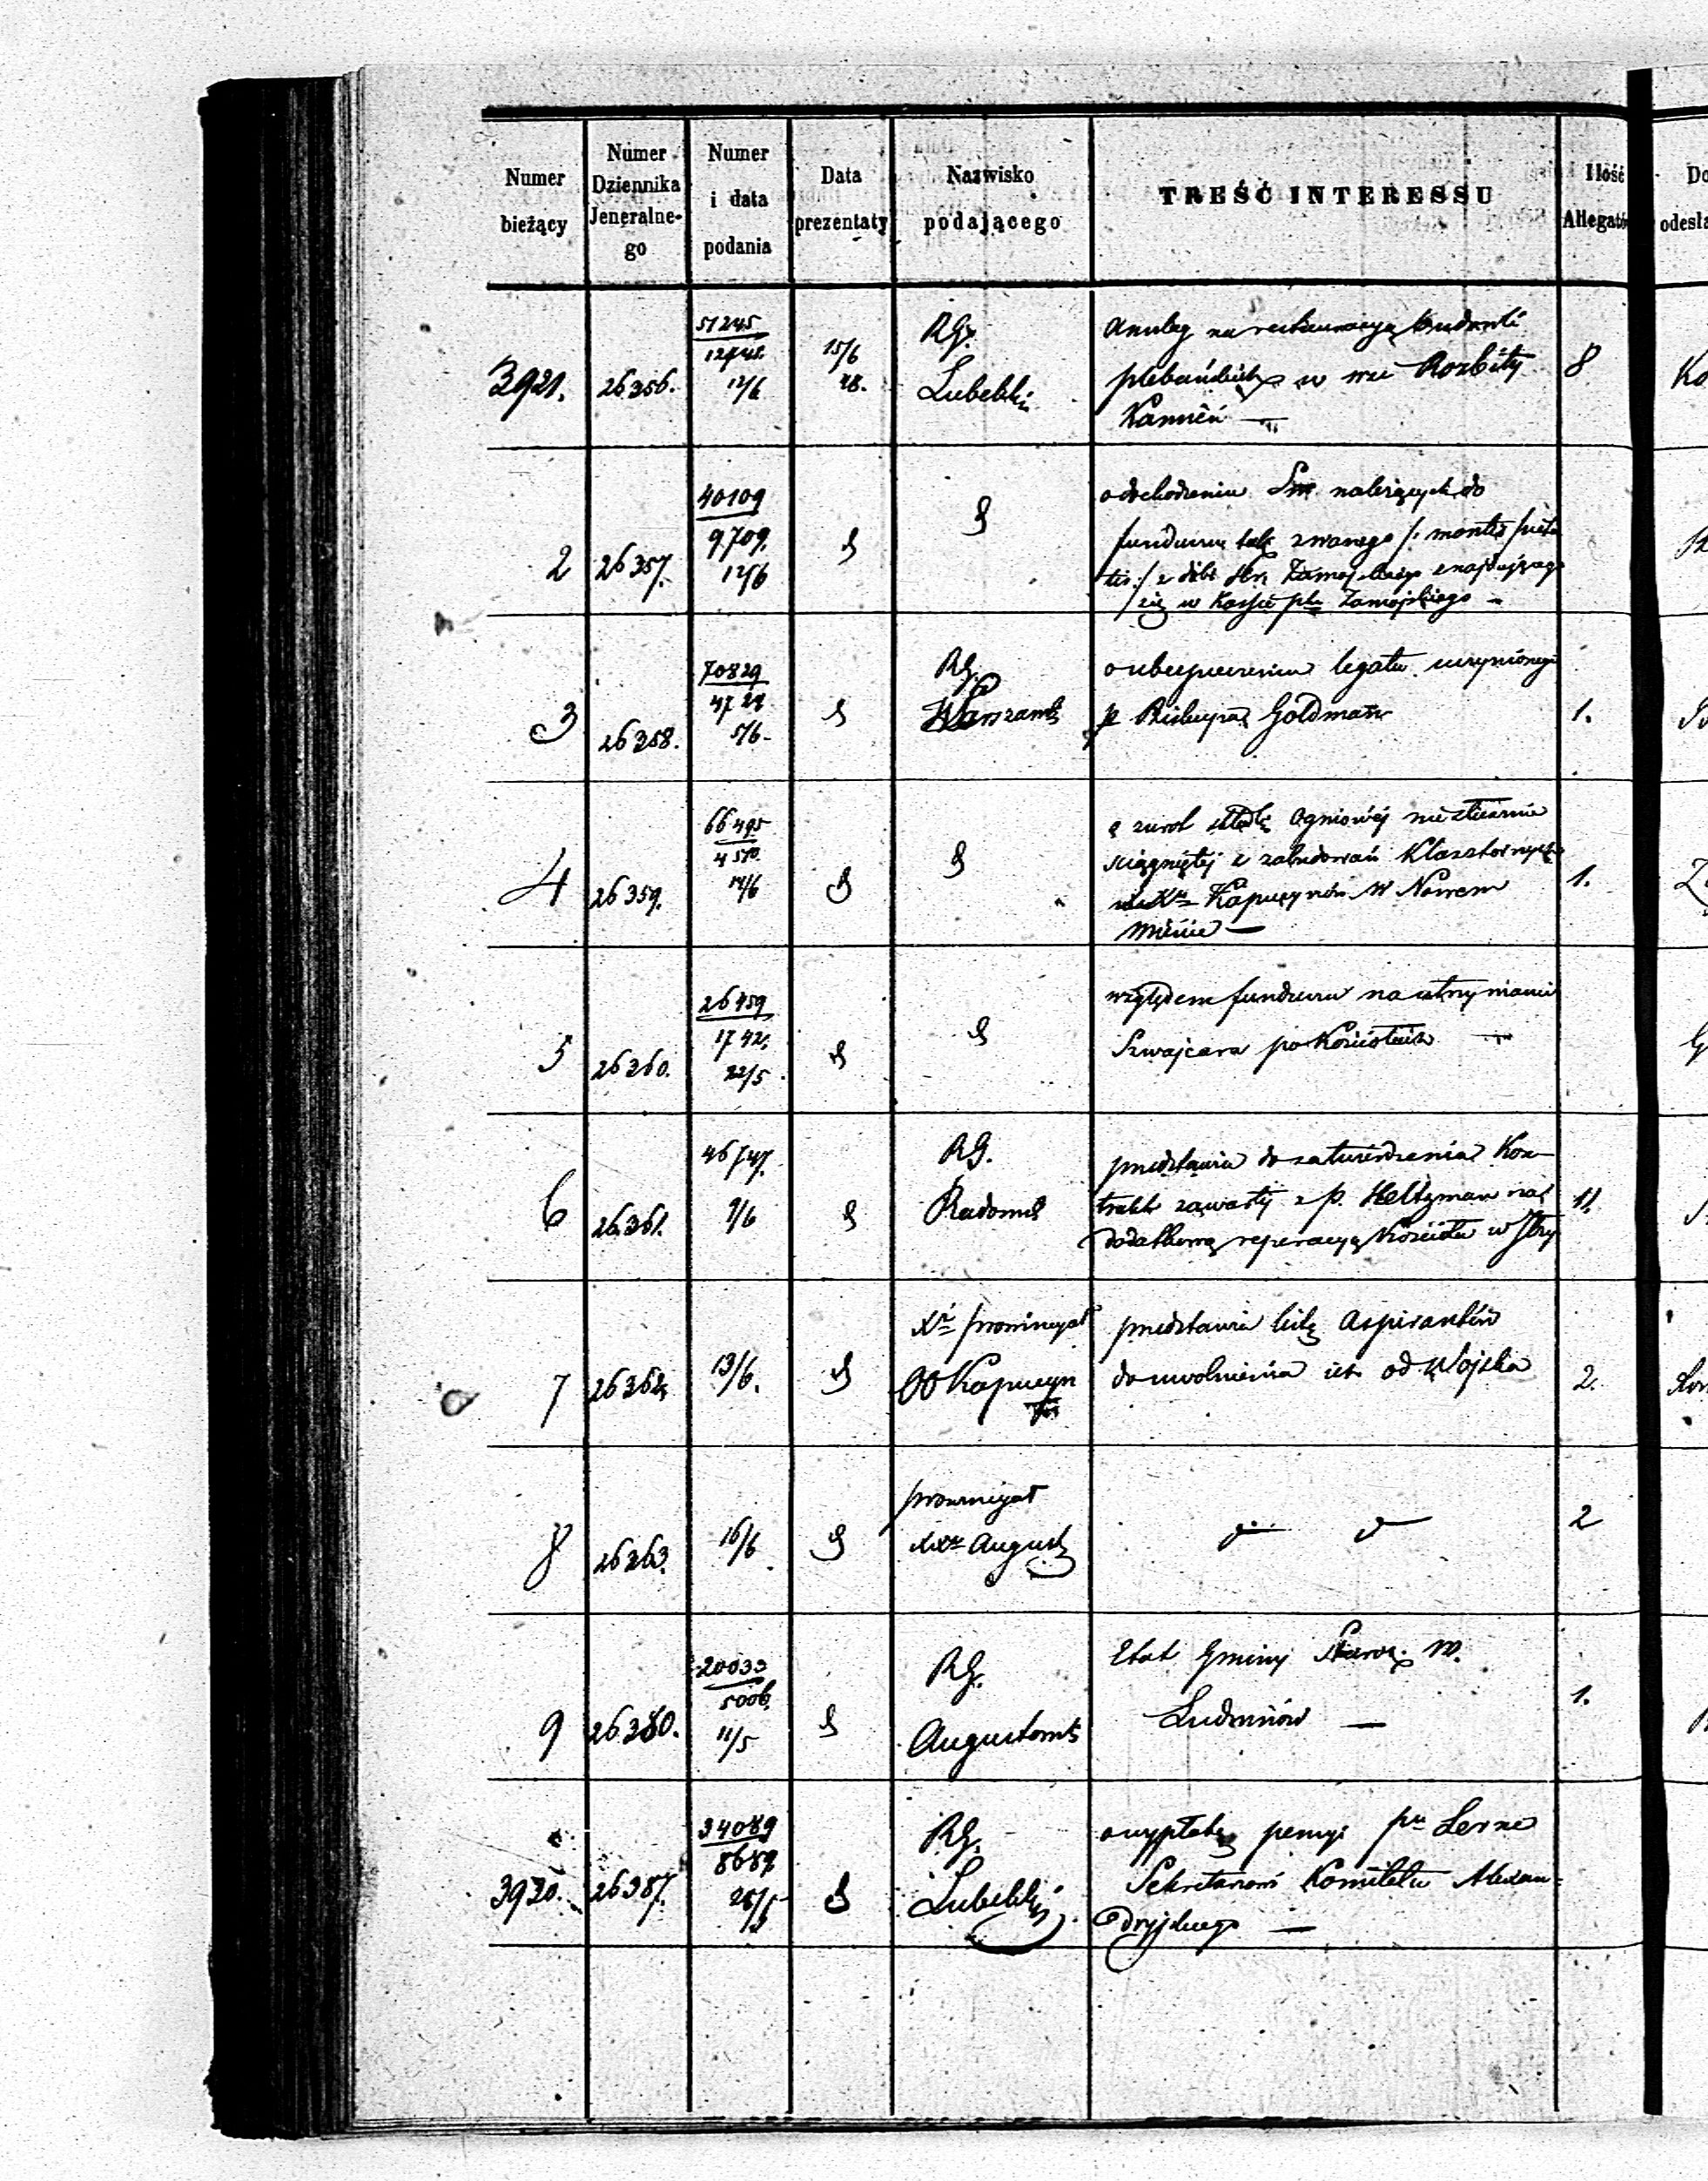 Numer bieżący
Numer Dziennika Jeneralnego
Numer i data podania
Data prezentaty
Nazwisko podającego
TREŚĆ INTERESSU
Ilość Allegatów
3921. 26356. 51245 12/6 15/6 28. RG. Lubelski
Anszlag na restauracyą budowli
plebańskich w wsi Rozbity
Kamień — 8
2 26357. 40109 9709. 12/6
o dochodzeniu należących do
funduszu tak zwanego /: montis pieta
tis :/ z dóbr Zamojskiego znajdującego
się w Kassie Zamojskiego —
3 26358. 70829 4724 5/6 RG. Warszaws
o ubezpieczeniu legatu uczynionego
p Biskupa Goldman 1.
4 26359. 66495 4510. 14/6
o zwrot składki Ogniowéj niesłusznie
ściągniętéj z zabudowań Klasztornych
Kapucynów w Nowem
Mieście — 1.
5 26360. 26459 1742. 22/5
względem funduszu na utrzymanie
Szwajcara po Kościołach —
6 26361. 46747. 9/6 RG. Radoms
przedstawia do zatwierdzenia Kon-
trakt zawarty z p. Heltzman na
dodatkową reperacyą Kościoła w Iłży 11.
7 26362. 13/6. prowincyał OO Kapucyn
przedstawia listę Aspirantów
do uwolnienia ich od Wojska 2.
8 26363. 16/6 prowincyał XXw August 2
9 26380. 20033 5006. 11/5 RG. Augustows
Etat Gminy Staroz. w.
Ludwinów — 1.
3930. 26387. 34089 8689 28/5 RG. Lubelski
o wypłatę pensyi pu Lerne
Sekretarzowi Komitetu Alexan-
dryjskiego —